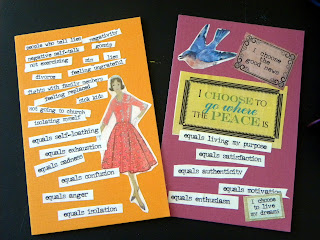 people who tell lies
negativity
negative self-talk
gossip
not exercising
sin
lies
divorce
feeling ungrateful
fights with family members
feeling replaced
sick kids
not going to church
isolating myself
equals self-loathing
equals exhaustion
equals sadness
equals confusion
equals anger
equals isolation
i choose
the
good news
I CHOOSE TO
go where
THE PEACE IS
equals living my purpose
equals satisfaction
equals authenticity
equals motivation
equals enthusiasm
i choose
to live
my dreams